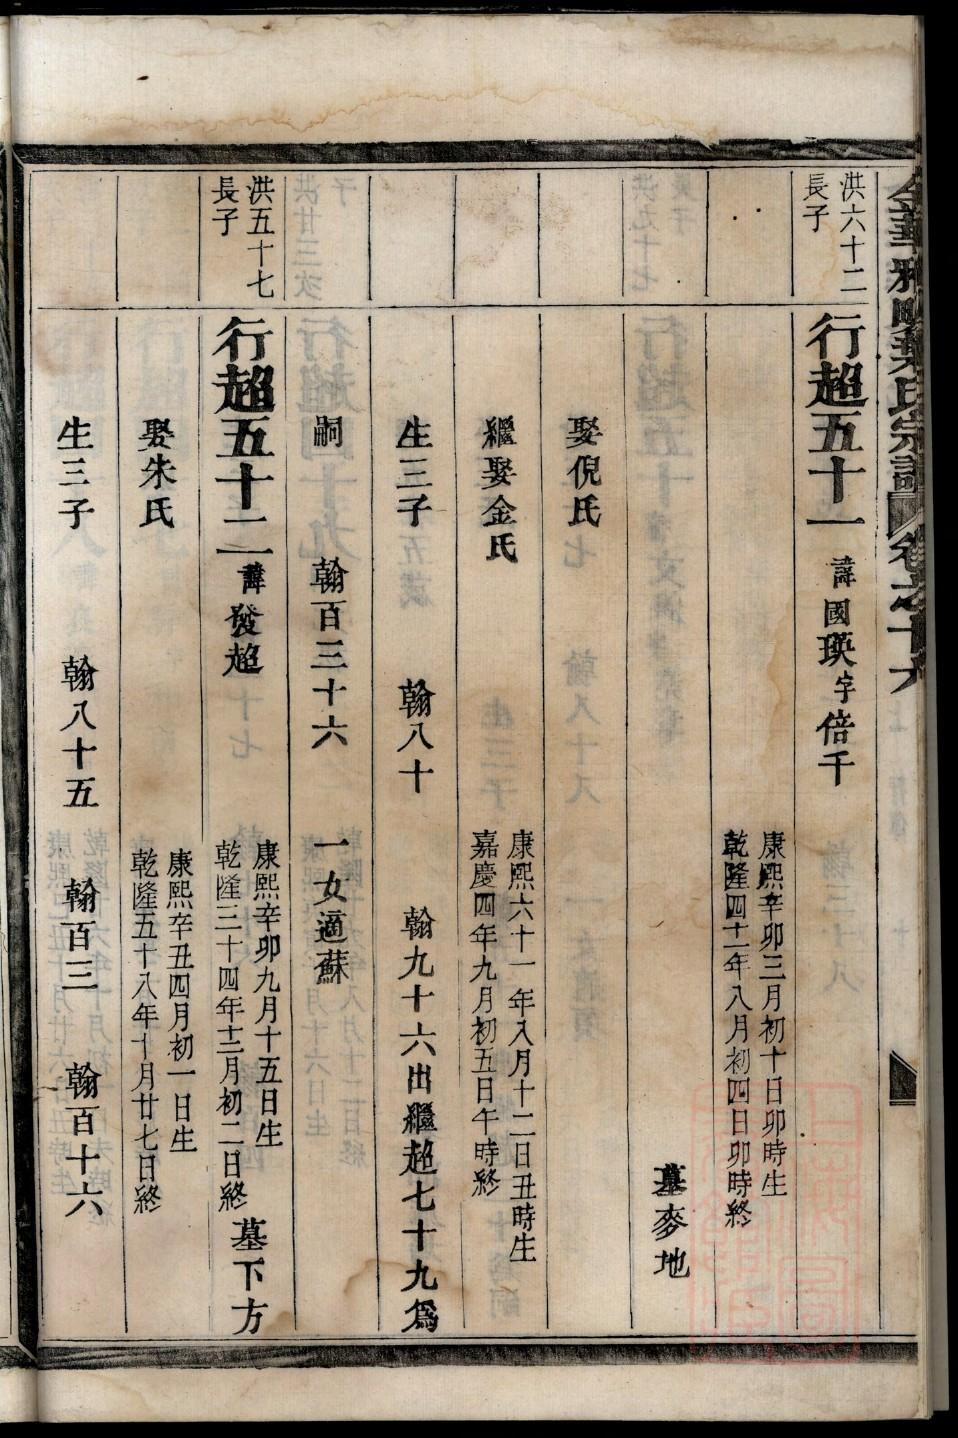 洪六十二
長子
行超五十一 諱國瑛字倍千
康熙辛卯三月初十日卯時生
乾隆四十二年八月初四日卯時終
墓麥地
娶倪氏
繼娶金氏
康熙六十一年八月十二日丑時生
嘉慶四年九月初五日午時終
生三子 翰八十 翰九十六出繼超七十九爲
嗣 翰百三十六 一女適蘇
洪五十七
長子
行超五十二 諱發超
康熙辛卯九月十五日生
乾隆三十四年十二月初二日終
墓下方
娶朱氏
康熙辛丑四月初一日生
乾隆五十八年十月廿七日終
生三子 翰八十五 翰百三 翰百十六